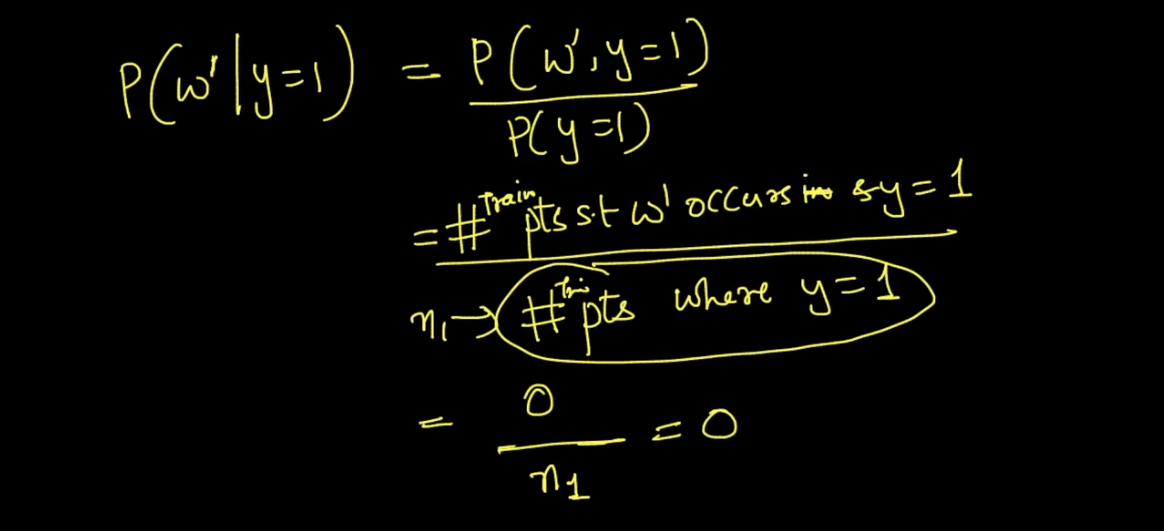 P(w'|y=1) = P(w', y=1)
P(y=1)
= # Train pts s.t w' occurs in & y = 1
n₁ → # Train pts where y = 1
= 0 = 0
n₁